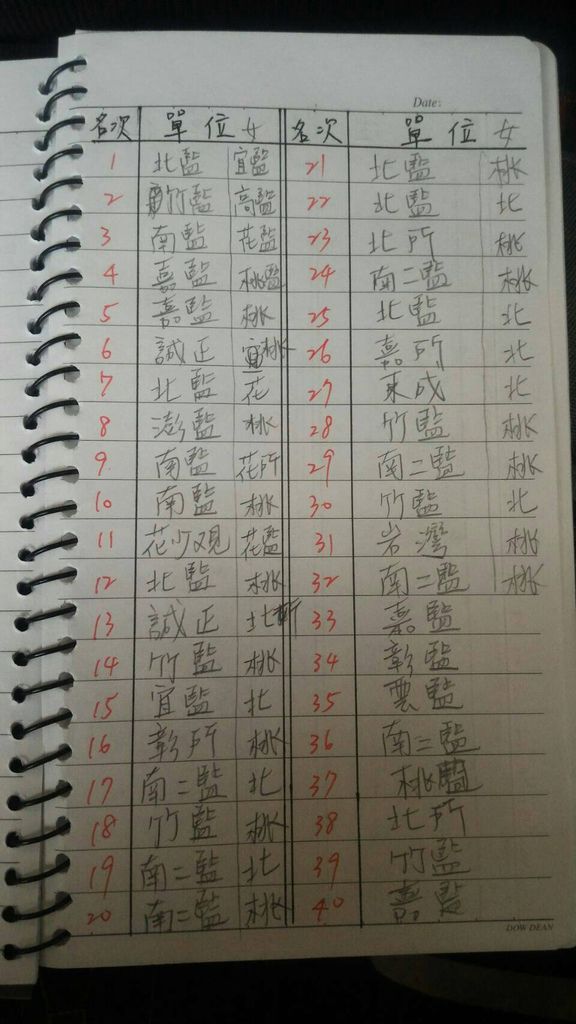 Date:
名次 單位 女 名次 單位 女
1 北監 宜監 21 北監 桃
2 竹監 高監 22 北監 北
3 南監 花監 23 北所 桃
4 嘉監 桃監 24 南二監 桃
5 嘉監 桃 25 北監 北
6 誠正 桃 26 嘉所 北
7 北監 花 27 東成 北
8 澎監 桃 28 竹監 桃
9 南監 花所 29 南二監 桃
10 南監 桃 30 竹監 北
11 花少观 花監 31 岩灣 桃
12 北監 桃 32 南二監 桃
13 誠正 北所 33 嘉監
14 竹監 桃 34 彰監
15 宜監 北 35 雲監
16 彰所 桃 36 南二監
17 南二監 北 37 桃監
18 竹監 桃 38 北所
19 南二監 北 39 竹監
20 南二監 桃 40 嘉監
DOW DEAN